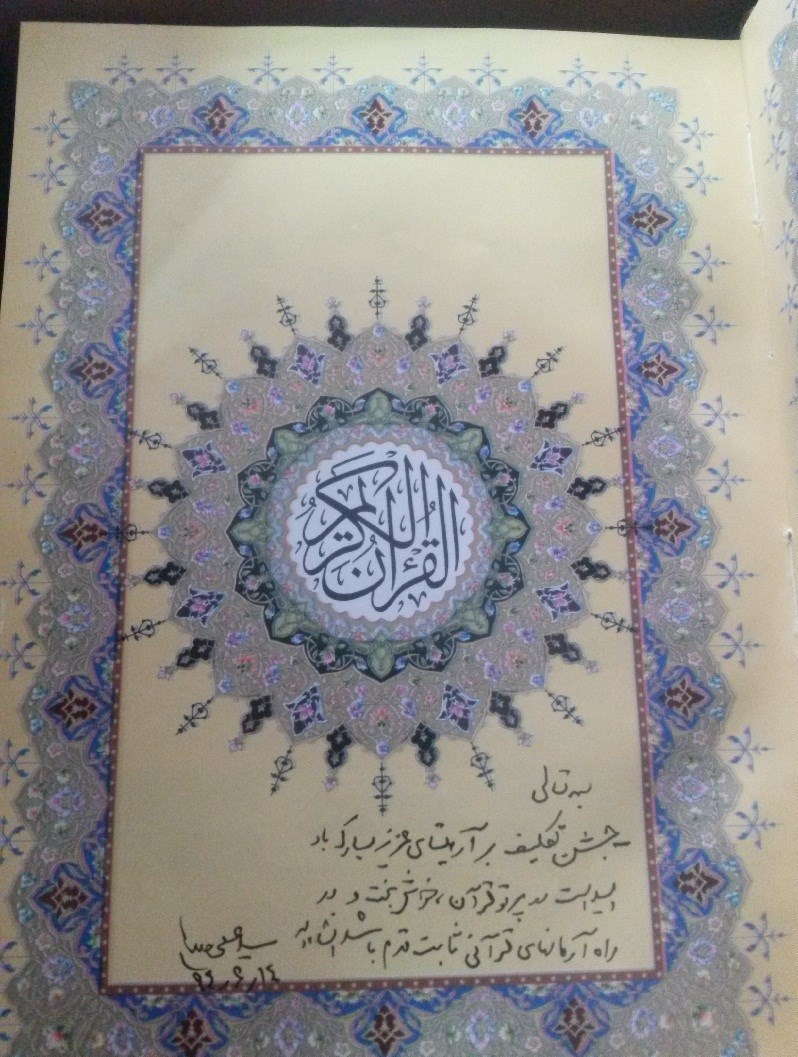 القرآن الكريم
بسه تعالی
جشن تکلیف بر آرمیتای عزیز مبارک باد
امید است در پرتو قرآن، خوشبخت و در
راه آرمانهای قرآنی ثابت قدم باشد انشاءاله
سید